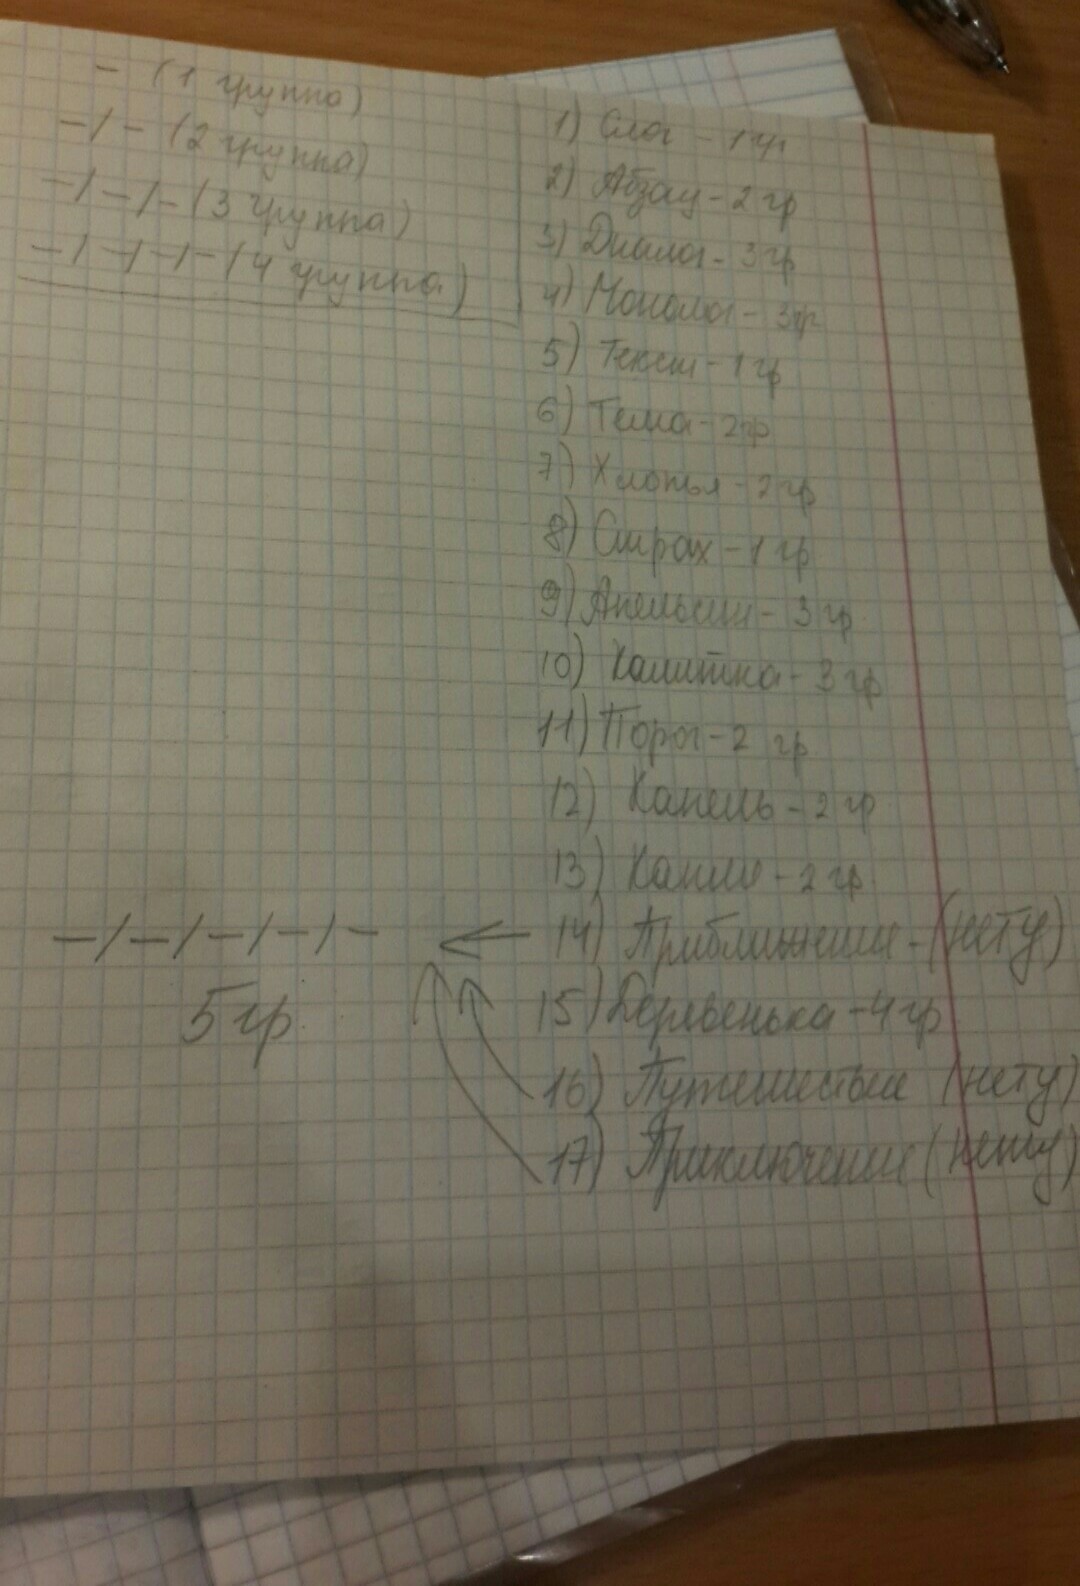 - (1 группа)
-/- (2 группа)
-/-/- (3 группа)
-/-/-/- (4 группа)
1) Слог - 1 гр
2) Абзац - 2 гр
3) Диалог - 3 гр
4) Монолог - 3 гр
5) Текст - 1 гр
6) Тема - 2 гр
7) Хлопья - 2 гр
8) Страх - 1 гр
9) Апельсин - 3 гр
10) Калитка - 3 гр
11) Порог - 2 гр
12) Капель - 2 гр
13) Капли - 2 гр
-/-/-/-/-
5 гр
14) Приближение - (нету)
15) Деревенька - 4 гр
16) Путешествие (нету)
17) Приключение (нету)